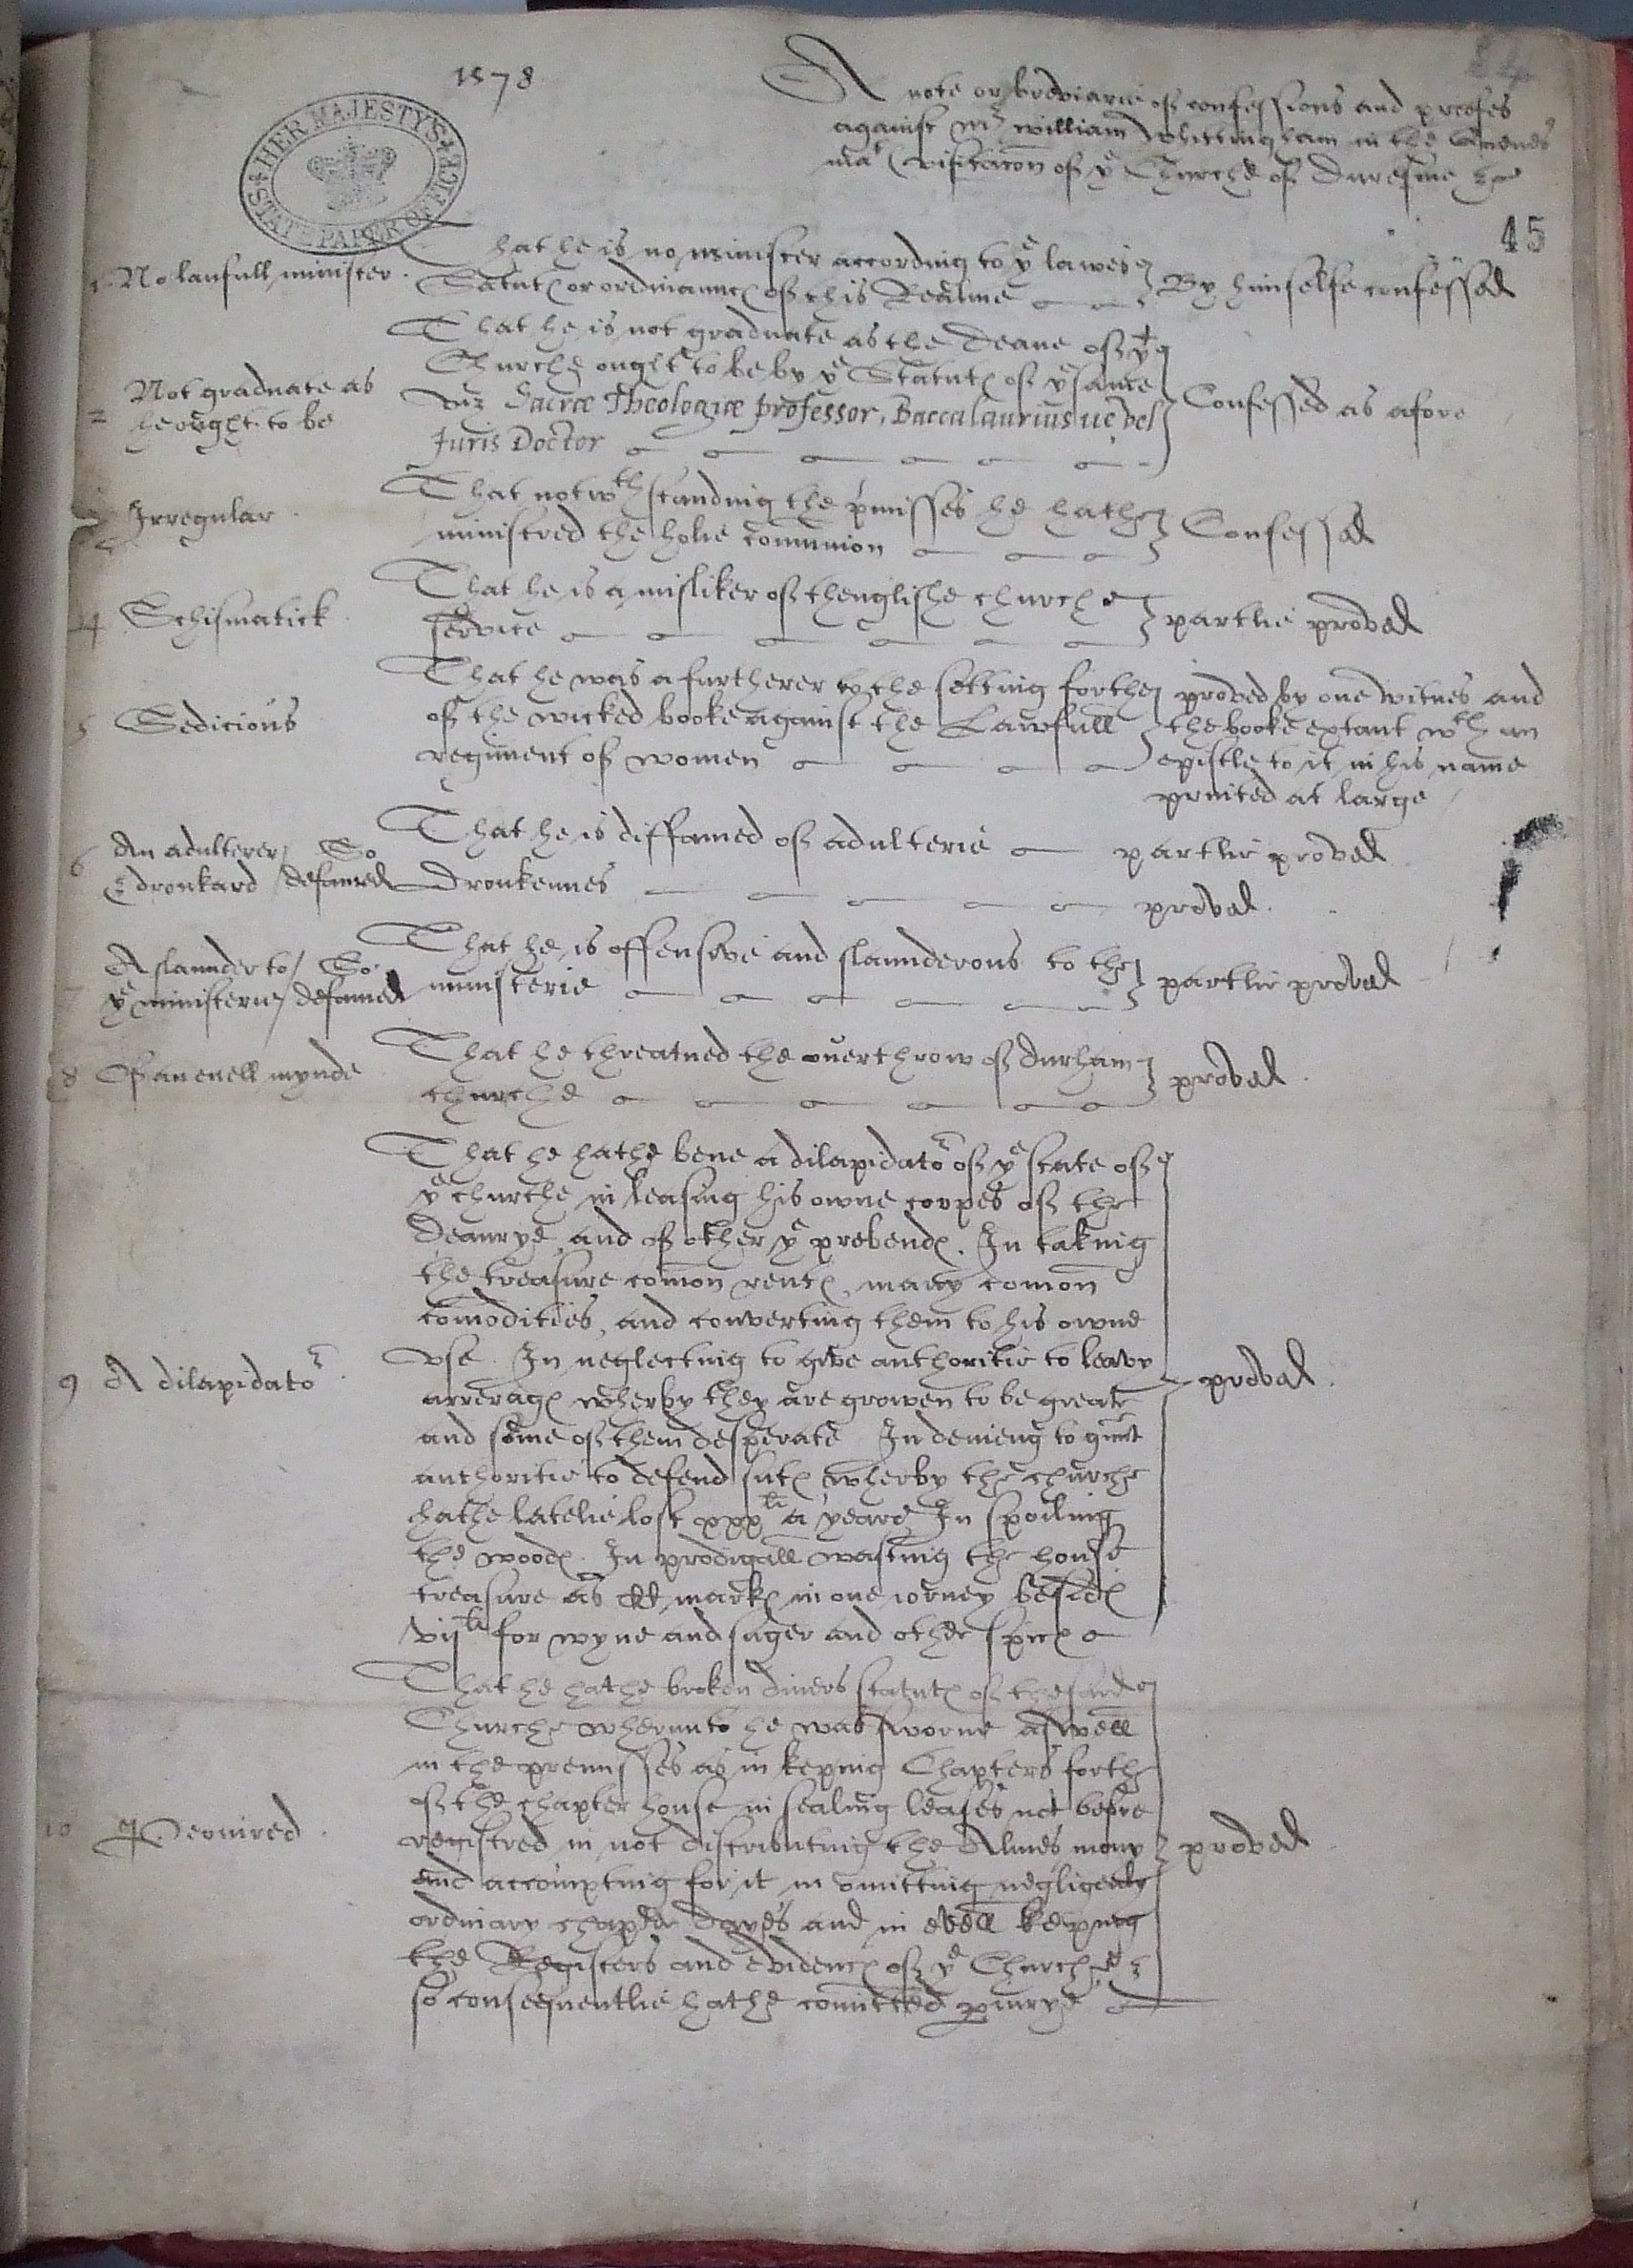 1578
A note or breviarie of confessions and proofes
against Mr William Whittingham in the Quenes
matꝭ visitacon of ye Churche of Duresme
HER MAJESTY'S STATE PAPER OFFICE
45
1 No laufull minister.
That he is no minister according to ye lawes
Statutꝭ or ordinauncꝭ of this Realme
By himselfe confessed
2 Not graduate as
he ought to be
That he is not graduate as the Deane of yt
Churche ought to be by ye Statutꝭ of ye same
viz Sacræ Theologiæ professor, Baccalaurius ue vel
Juris Doctor
Confessed as afore
3 Irregular
That notwth standing the pmisses he hathe
ministred the holie comunion
Confessed
4 Schismatick
That he is a misliker of thenglishe churche
service
partlie proved
5 Sedicious
That he was a furtherer to the setting forthe
of the wicked booke against the Lawfull
regiment of women
proved by one witnes and
the booke extant wth an
epistle to it in his name
printed at large
6 An adulterer So
& dronkard defamed
That he is diffamed of adulterie
partlie proved
Dronkennes
proved.
7 A slaunder to So
ye ministerie defamed
That he is offensive and slaunderous to the
ministerie
partlie proved
8 Of an evell mynde
That he threatned the ouerthrow of Durham
churche
proved.
9 A dilapidator
That he hathe bene a dilapidator of ye state of
ye churche in leasing his owne corpes of the
Deanrye, and of other ye prebendꝭ. In taking
the treasure comon rentꝭ, many comon
comodities, and converting them to his owne
vse. In neglecting to give authoritie to leavy
arreragꝭ wherby they are growen to be great
and some of them desperate In denieng to graunt
authoritie to defend sutꝭ wherby the churche
hathe latelie lost xxxli a yeare In spoiling
the woodꝭ. In prodigall wasting the house
treasure as CC markꝭ in one iorney besidꝭ
vijli for wyne and suger and other spicꝭ
proved.
10 Periured.
That he hathe broken divers statutꝭ of the said
Churche wherunto he was sworne aswell
in the premisses as in keping Chapters forthe
of the chapter house in sealing leases not before
registred in not distributing the Almes mony
and accompting for it in omitting negligently
ordinary chapter dayes and in evell keping
the Registers and evidencꝭ of ye Churche &
so consequentlie hathe comitted periurye
proved